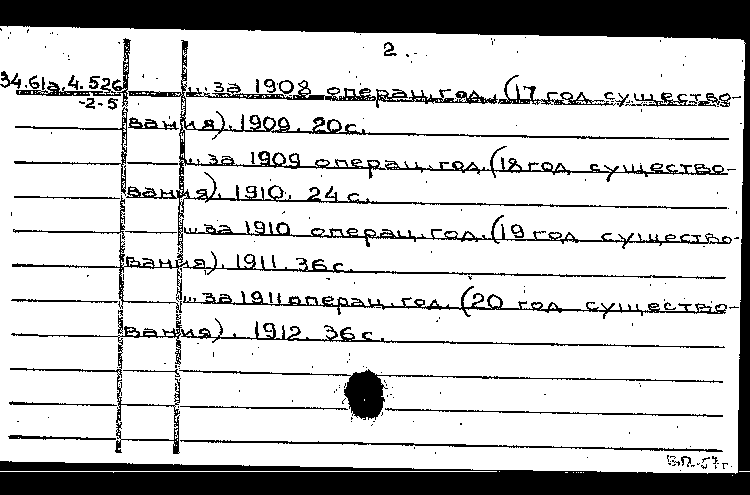 2.
34.61а.4.526 ... за 1908 операц. год. (17 год существо-
-2-5
вания). 1909. 20 с.
... за 1909 операц. год. (18 год существо-
вания). 1910. 24 с.
... за 1910 операц. год. (19 год существо-
вания). 1911. 36 с.
... за 1911 операц. год. (20 год существо-
вания). 1912. 36 с.
В.П.-57г.